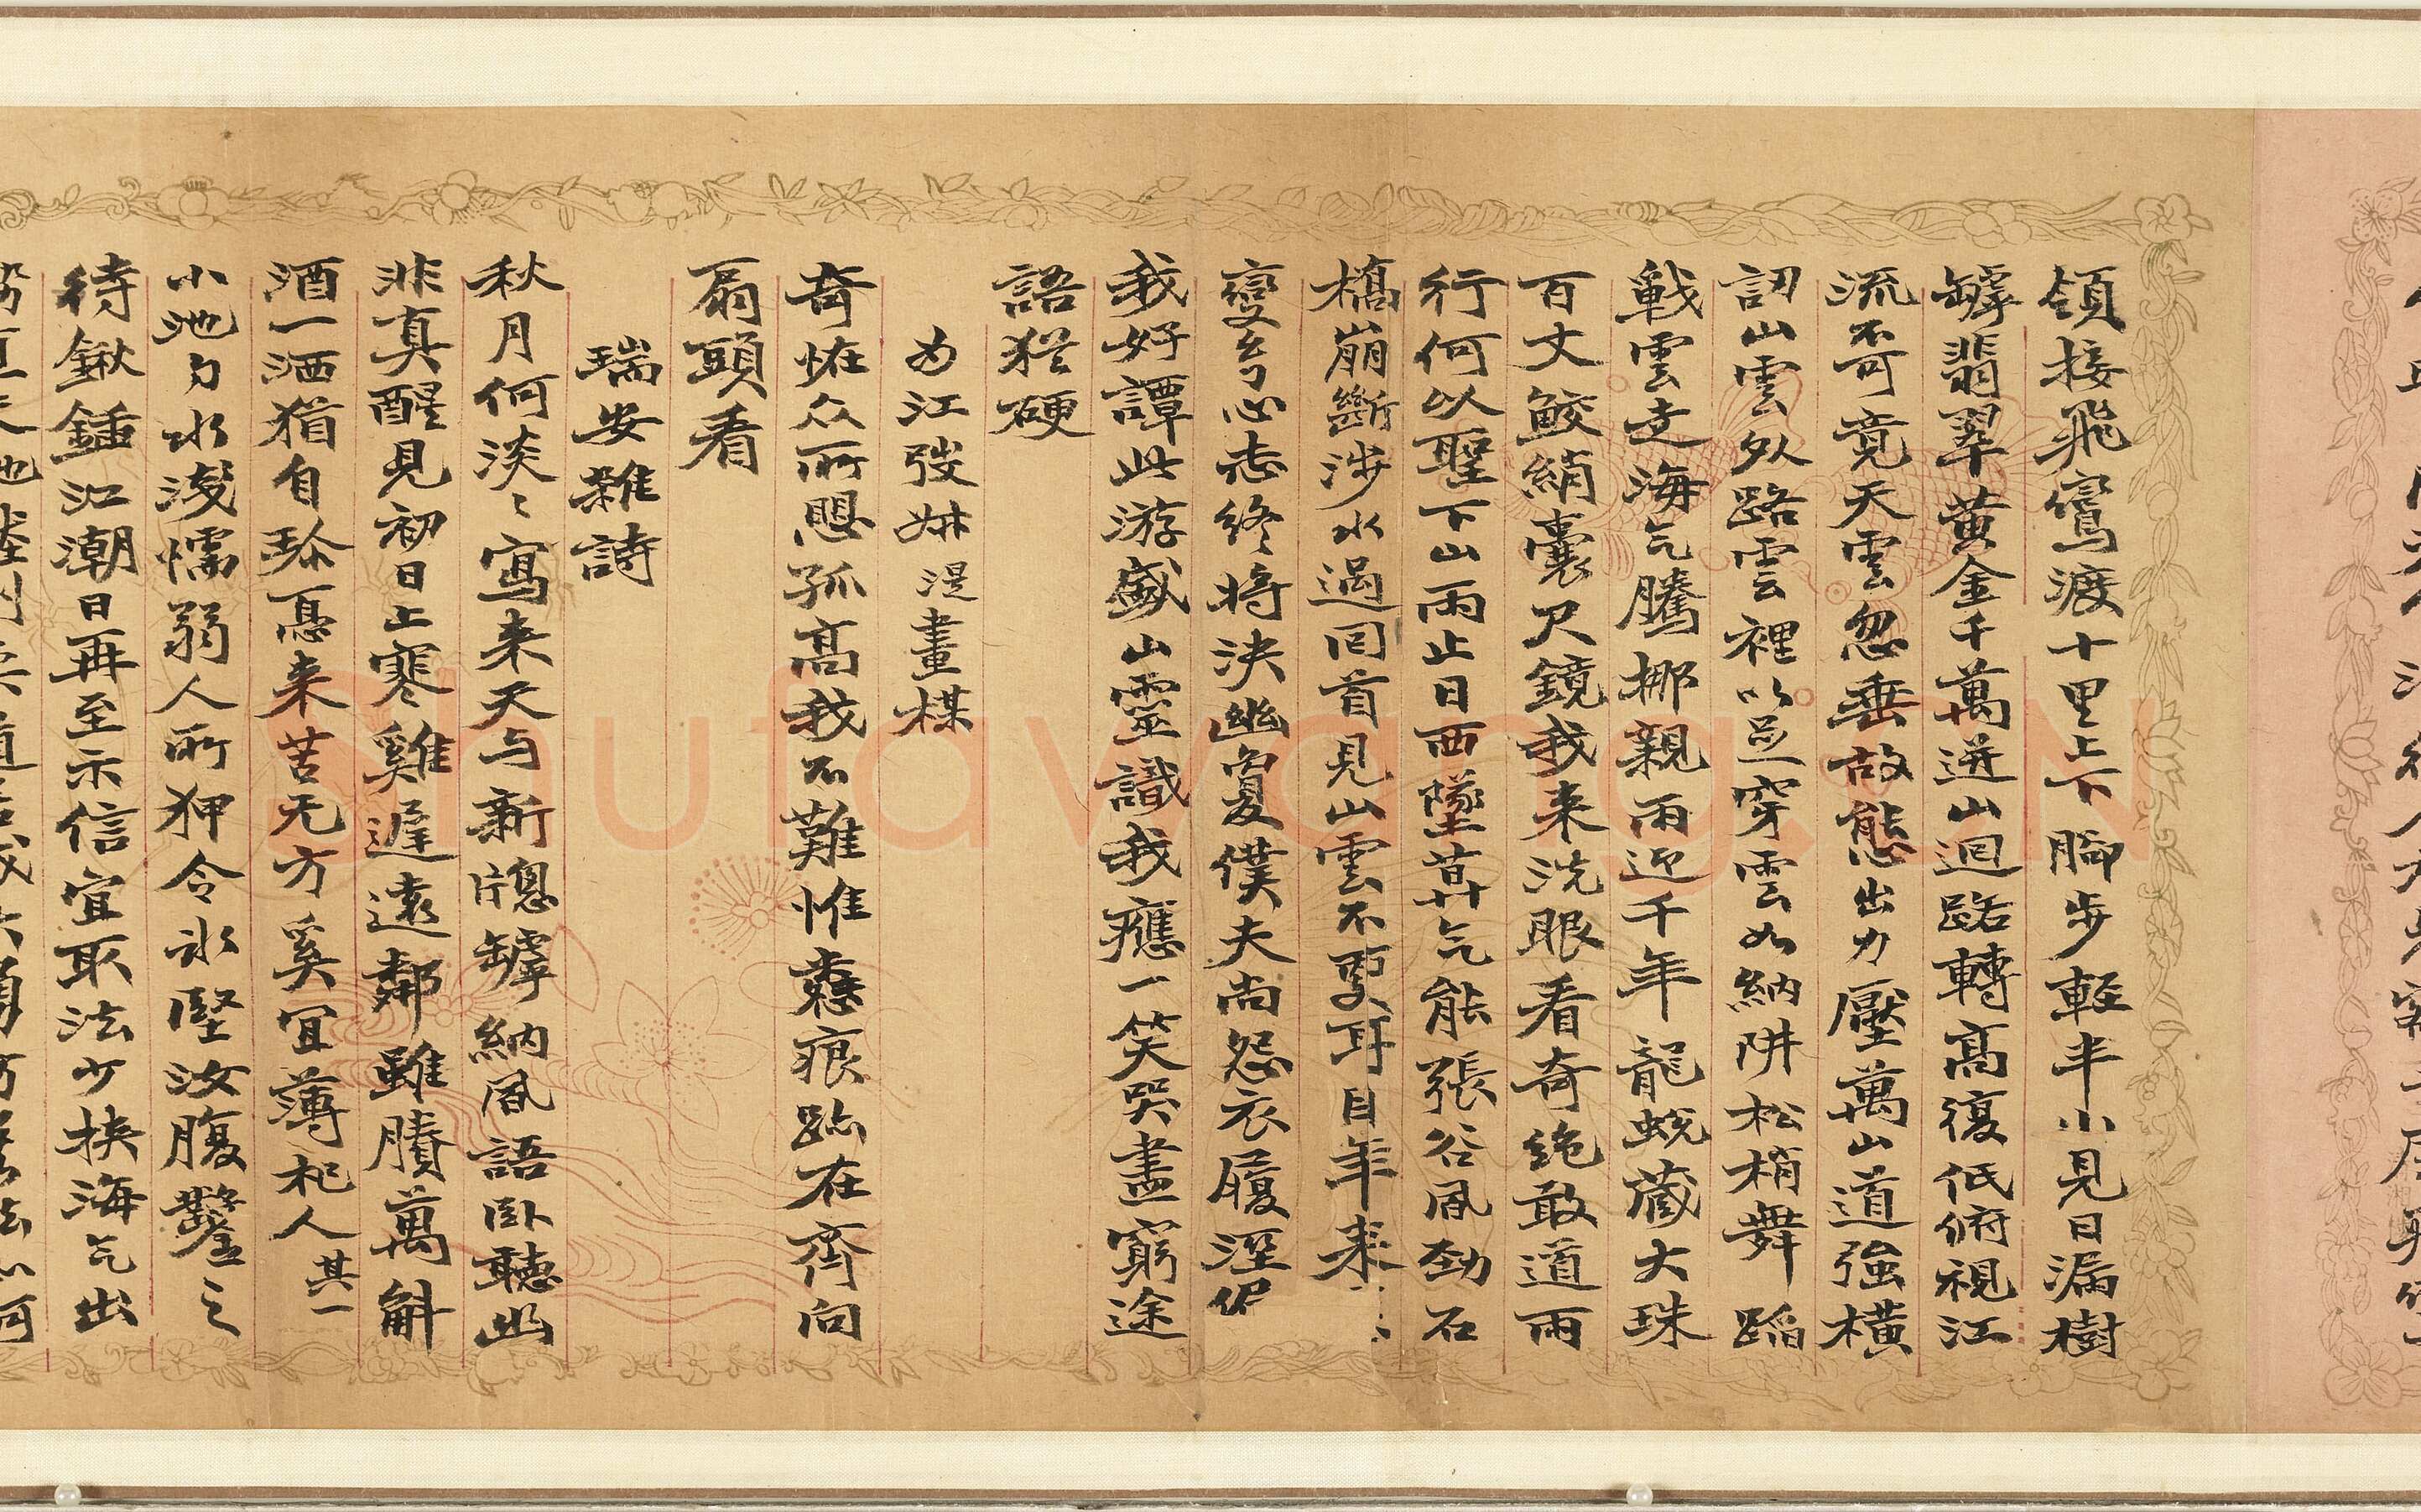 領接飛鸞渡十里上下腳步輕半小見日漏樹
罅翡翠黃金千萬迸山迴路轉高復低俯視江
流不可竟天雲忽垂故態出力壓萬山道強橫
認山雲外路雲裡以足穿雲如納阱松梢舞蹈
戰雲走海气騰挪親雨迎千年龍蛻藏大珠
百丈鮫綃囊尺鏡我来洗眼看奇絶敢道雨
行何以聖下山雨止日西墜草气能張谷風勁石
橋崩斷涉水過回首見山雲不耳目年来
變兮心志終將決幽夐僕夫尚怨衣履溼
我好譚此游盛山靈識我應一笑哭盡窮途
語猶硬
為江弢叔湜畫楳
奇怪众所愳孤高我不難惟愁痕跡在齊向
扇頭看
瑞安雜詩
秋月何淡〻寫来天与新牕罅納風語臥聽此
非真醒見初日上寒雞遲遠鄰雖賸萬斛
酒一洒猶自珎憂来苦无方奚宜薄杞人其一
小池勺水淺懦弱人所狎令冰堅汝腹鑿之
待鍬鍤江潮日再至示信宜取法少挾海气出